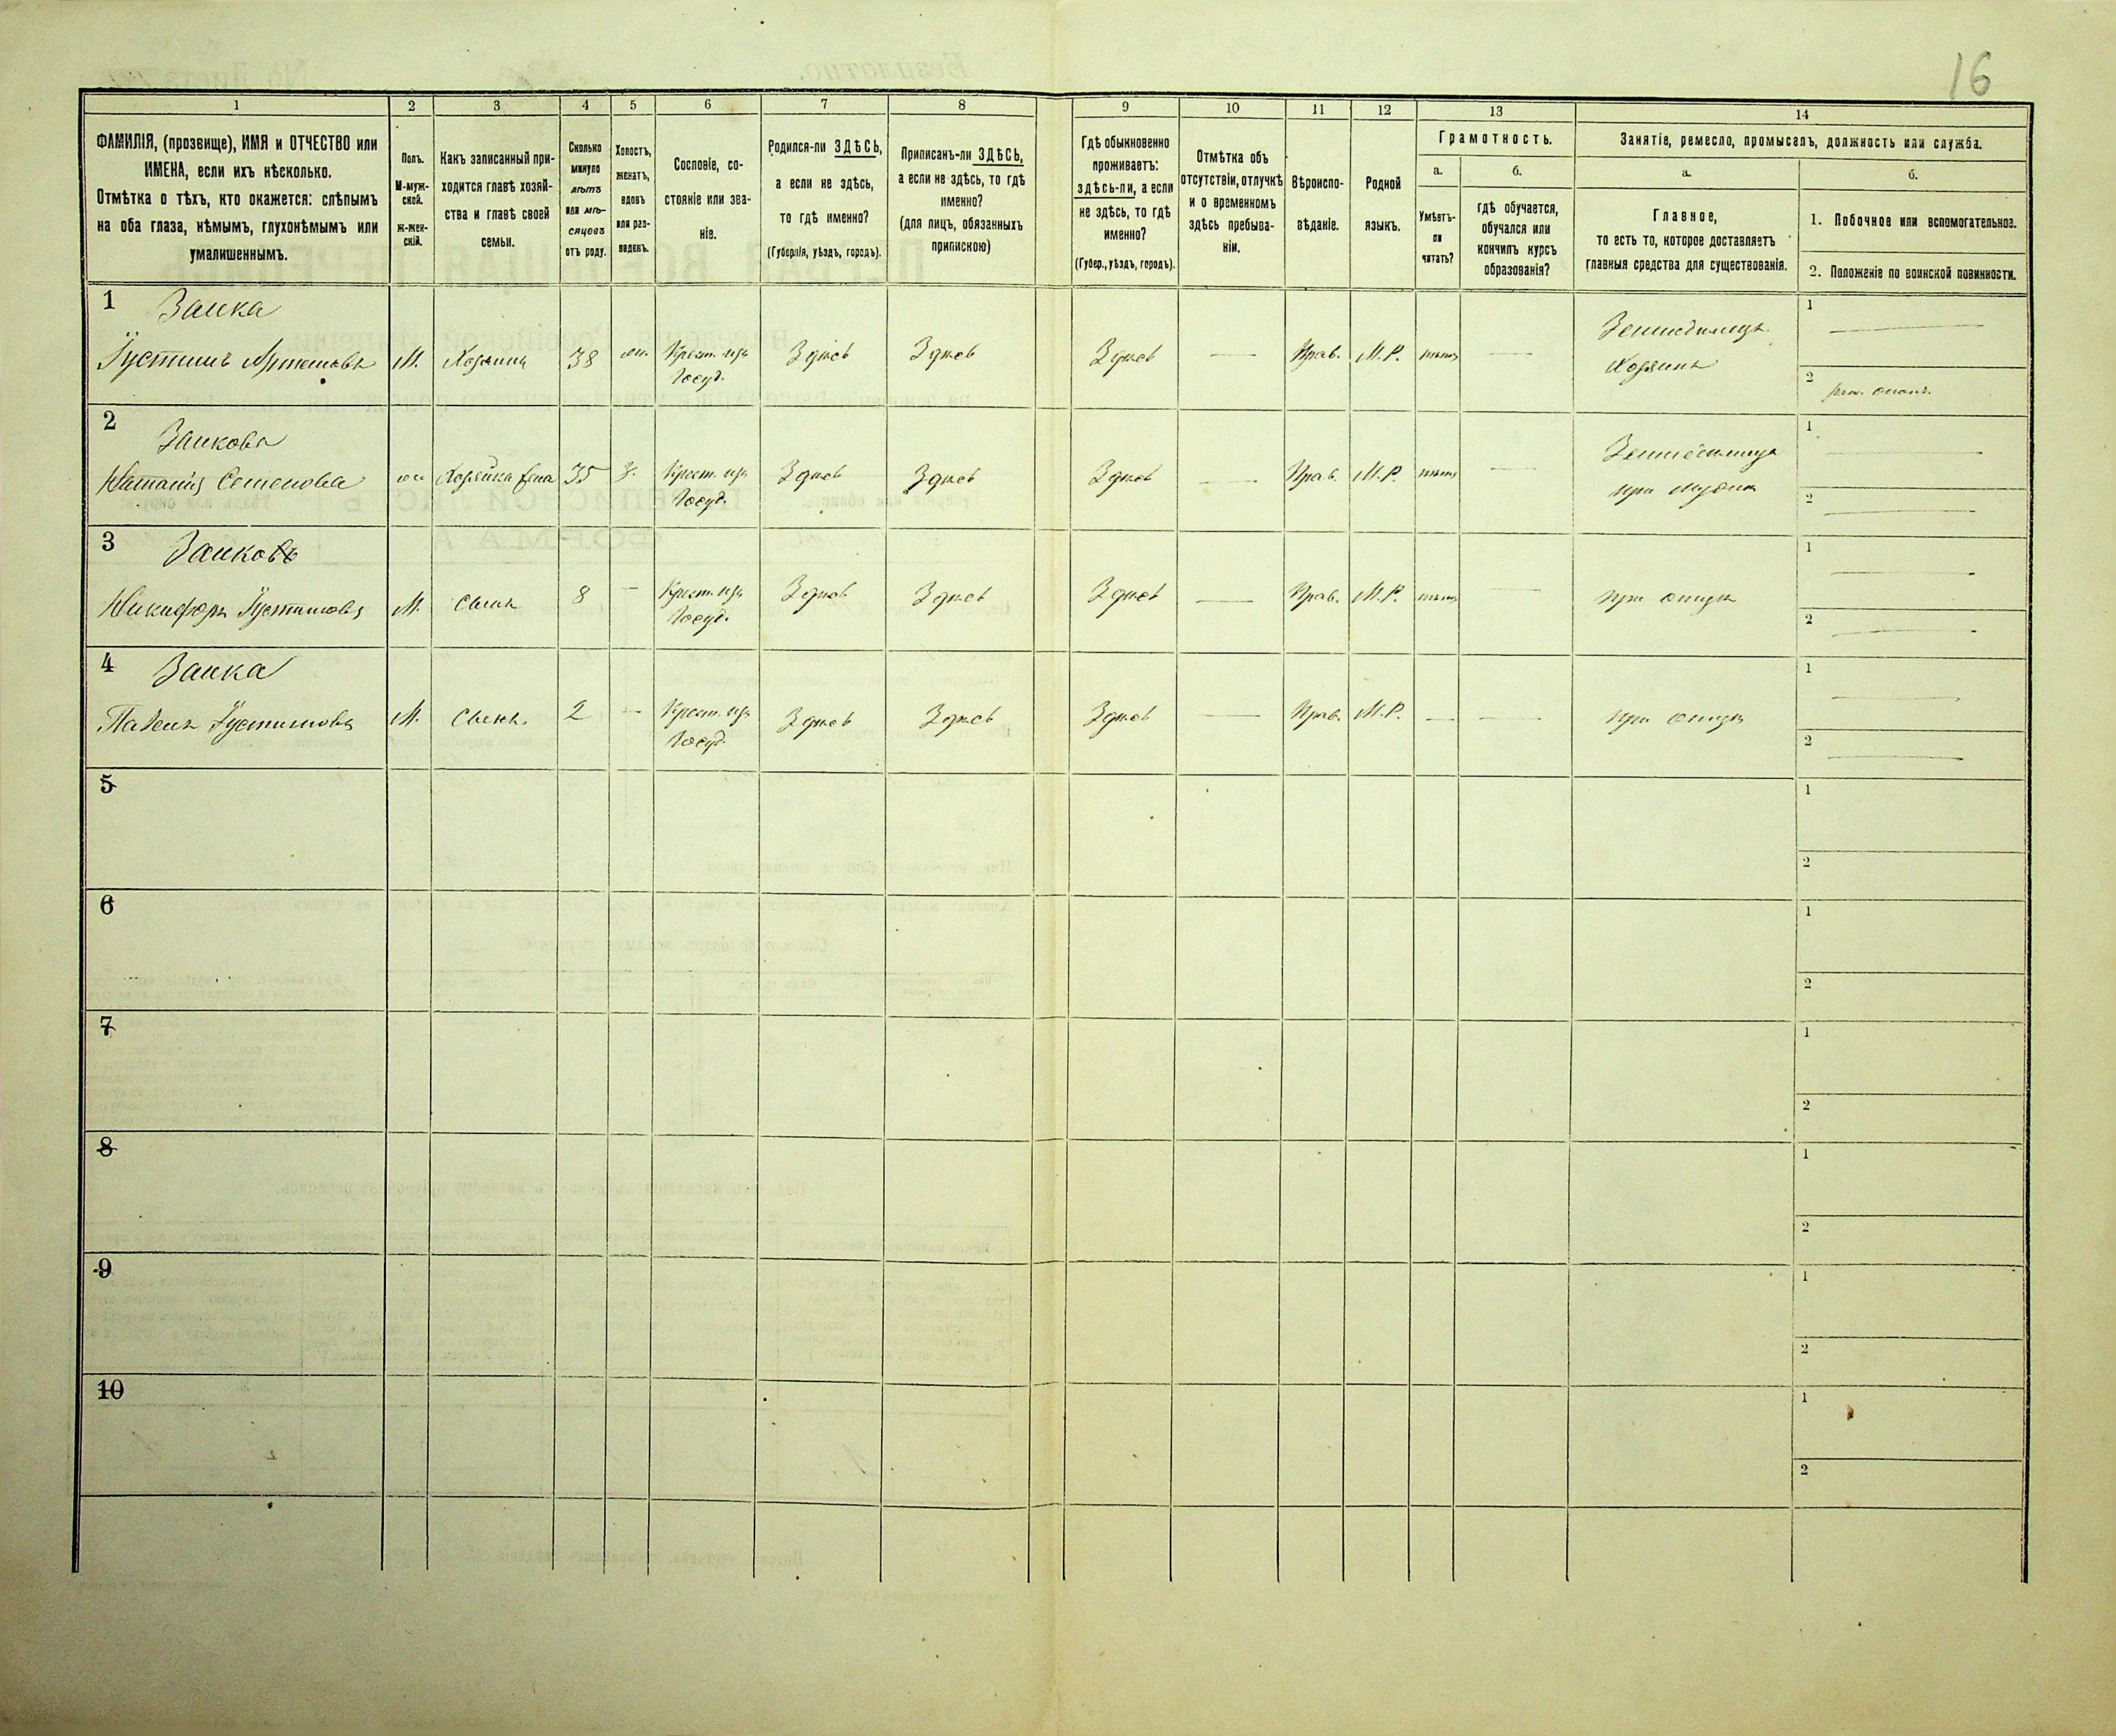 16
1 2 3 4 5 6 7 8 9 10 11 12 13 14
ФАМИЛІЯ, (прозвище), ИМЯ и ОТЧЕСТВО или
ИМЕНА, если ихъ нѣсколько.
Отмѣтка о тѣхъ, кто окажется: слѣпымъ
на оба глаза, нѣмымъ, глухонѣмымъ или
умалишеннымъ.
Полъ.
М-муж-
ской.
ж-жен-
скій.
Какъ записанный при-
ходится главѣ хозяй-
ства и главѣ своей
семьи.
Сколько
минуло
лѣтъ
или мѣ-
сяцевъ
отъ роду.
Холостъ,
женатъ,
вдовъ
или раз-
веденъ.
Сословіе, со-
стояніе или зва-
ніе.
Родился-ли ЗДѢСЬ,
а если не здѣсь,
то гдѣ именно?
(Губернія, уѣздъ, городъ).
Приписанъ-ли ЗДѢСЬ,
а если не здѣсь, то гдѣ
именно?
(для лицъ, обязанныхъ
припискою)
Гдѣ обыкновенно
проживаетъ:
здѣсь-ли, а если
не здѣсь, то гдѣ
именно?
(Губер., уѣздъ, городъ).
Отмѣтка объ
отсутствіи, отлучкѣ
и о временномъ
здѣсь пребыва-
ніи.
Вѣроиспо-
вѣданіе.
Родной
языкъ.
Грамотность.
а.
Умѣетъ-
ли
читать?
б.
гдѣ обучается,
обучался или
кончилъ курсъ
образованія?
Занятіе, ремесло, промыселъ, должность или служба.
а.
Главное,
то есть то, которое доставляетъ
главныя средства для существованія.
б.
1. Побочное или вспомогательное.
2. Положеніе по воинской повинности.
1 Заика
Устимъ Артемовъ М. Хозяинъ 38 жн. Крест. изъ Здесь Здесь Здесь — Прав. М.Р. нѣтъ — Земледѣлецъ 1 —
Госуд. Хозяинъ 2
2 Заикова
Наталія Семенова ж Хозяйка жена 35 з. Крест. изъ Здесь Здесь Здесь — Прав. М.Р. нѣтъ — Земледѣлица 1 —
Госуд. при мужѣ 2 —
3 Заиковъ
Никифоръ Устимовъ М. Сынъ 8 — Крест. изъ Здесь Здесь Здесь — Прав. М.Р. нѣтъ — при отцѣ 1 —
Госуд. 2 —
4 Заика
Павелъ Устимовъ М. Сынъ 2 — Крест. изъ Здесь Здесь Здесь — Прав. М.Р. — — при отцѣ 1 —
Госуд. 2 —
5 1
2
6 1
2
7 1
2
8 1
2
9 1
2
10 1
2